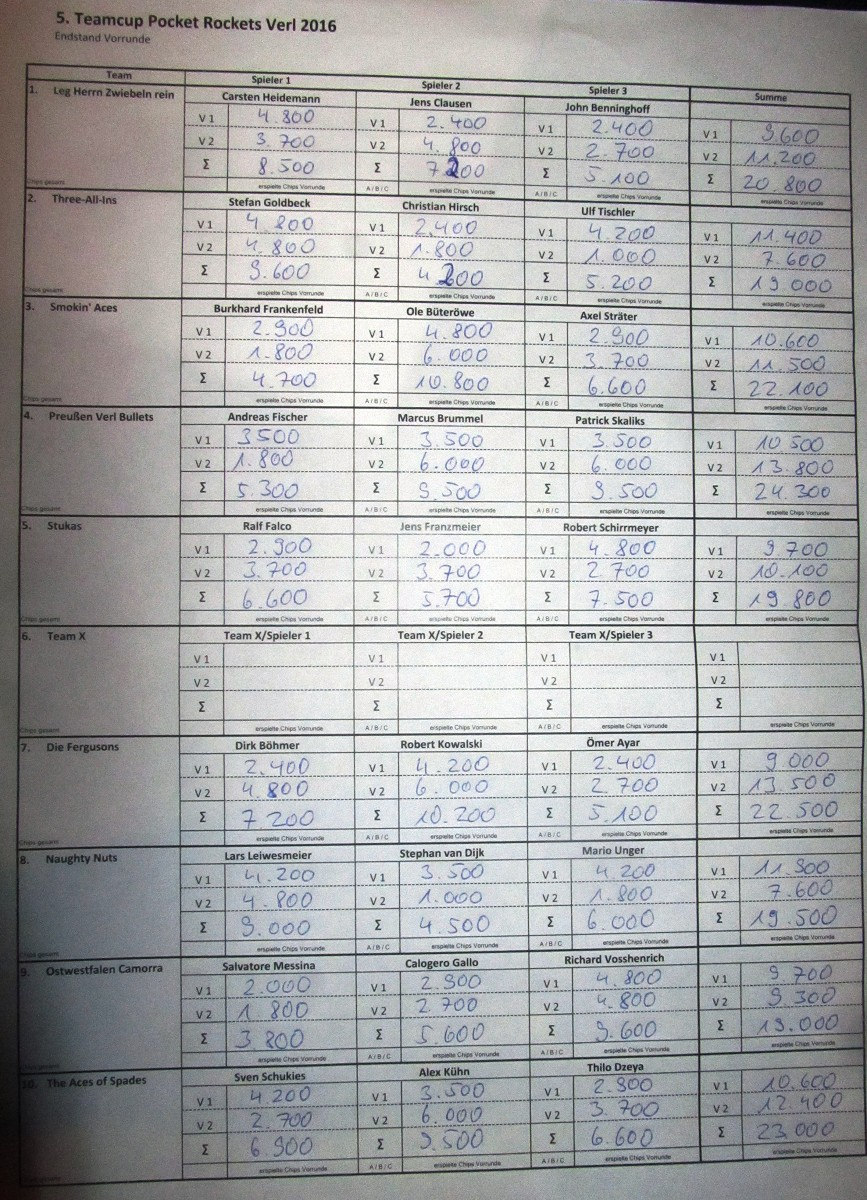 5. Teamcup Pocket Rockets Verl 2016
Endstand Vorrunde
Team Spieler 1 Spieler 2 Spieler 3 Summe
1. Leg Herrn Zwiebeln rein Carsten Heidemann Jens Clausen John Benninghoff
V 1 4.800 V 1 2.400 V 1 2.400 V 1 9.600
V 2 3.700 V 2 4.800 V 2 2.700 V 2 11.200
Σ 8.500 Σ 7200 Σ 5.100 Σ 20.800
Chips gesamt erspielte Chips Vorrunde A / B / C erspielte Chips Vorrunde A / B / C erspielte Chips Vorrunde erspielte Chips Vorrunde
2. Three-All-Ins Stefan Goldbeck Christian Hirsch Ulf Tischler
V 1 4.800 V 1 2.400 V 1 4.200 V 1 11.400
V 2 4.800 V 2 1.800 V 2 1.000 V 2 7.600
Σ 9.600 Σ 4.200 Σ 5.200 Σ 19.000
Chips gesamt erspielte Chips Vorrunde A / B / C erspielte Chips Vorrunde A / B / C erspielte Chips Vorrunde erspielte Chips Vorrunde
3. Smokin' Aces Burkhard Frankenfeld Ole Büteröwe Axel Sträter
V 1 2.900 V 1 4.800 V 1 2.900 V 1 10.600
V 2 1.800 V 2 6.000 V 2 3.700 V 2 11.500
Σ 4.700 Σ 10.800 Σ 6.600 Σ 22.100
Chips gesamt erspielte Chips Vorrunde A / B / C erspielte Chips Vorrunde A / B / C erspielte Chips Vorrunde erspielte Chips Vorrunde
4. Preußen Verl Bullets Andreas Fischer Marcus Brummel Patrick Skaliks
V 1 3500 V 1 3.500 V 1 3.500 V 1 10 500
V 2 1.800 V 2 6.000 V 2 6.000 V 2 13.800
Σ 5.300 Σ 9.500 Σ 9.500 Σ 24.300
Chips gesamt erspielte Chips Vorrunde A / B / C erspielte Chips Vorrunde A / B / C erspielte Chips Vorrunde erspielte Chips Vorrunde
5. Stukas Ralf Falco Jens Franzmeier Robert Schirrmeyer
V 1 2.900 V 1 2.000 V 1 4.800 V 1 9 700
V 2 3.700 V 2 3.700 V 2 2 700 V 2 10.100
Σ 6.600 Σ 5.700 Σ 7.500 Σ 19.800
Chips gesamt erspielte Chips Vorrunde A / B / C erspielte Chips Vorrunde A / B / C erspielte Chips Vorrunde erspielte Chips Vorrunde
6. Team X Team X/Spieler 1 Team X/Spieler 2 Team X/Spieler 3
V 1 V 1 V 1 V 1
V 2 V 2 V 2 V 2
Σ Σ Σ Σ
Chips gesamt erspielte Chips Vorrunde A / B / C erspielte Chips Vorrunde A / B / C erspielte Chips Vorrunde erspielte Chips Vorrunde
7. Die Fergusons Dirk Böhmer Robert Kowalski Ömer Ayar
V 1 2.400 V 1 4.200 V 1 2.400 V 1 9 000
V 2 4.800 V 2 6.000 V 2 2 700 V 2 13 500
Σ 7 200 Σ 10.200 Σ 5.100 Σ 22.500
Chips gesamt erspielte Chips Vorrunde A / B / C erspielte Chips Vorrunde A / B / C erspielte Chips Vorrunde erspielte Chips Vorrunde
8. Naughty Nuts Lars Leiwesmeier Stephan van Dijk Mario Unger
V 1 4.200 V 1 3.500 V 1 4.200 V 1 11.900
V 2 4.800 V 2 1.000 V 2 1.800 V 2 7.600
Σ 9.000 Σ 4.500 Σ 6.000 Σ 19.500
Chips gesamt erspielte Chips Vorrunde A / B / C erspielte Chips Vorrunde A / B / C erspielte Chips Vorrunde erspielte Chips Vorrunde
9. Ostwestfalen Camorra Salvatore Messina Calogero Gallo Richard Vosshenrich
V 1 2.000 V 1 2.900 V 1 4.800 V 1 9 700
V 2 1 800 V 2 2 700 V 2 4.800 V 2 9 300
Σ 3.800 Σ 5.600 Σ 9.600 Σ 19.000
Chips gesamt erspielte Chips Vorrunde A / B / C erspielte Chips Vorrunde A / B / C erspielte Chips Vorrunde erspielte Chips Vorrunde
10. The Aces of Spades Sven Schukies Alex Kühn Thilo Dzeya
V 1 4 200 V 1 3.500 V 1 2.900 V 1 10.600
V 2 2.700 V 2 6.000 V 2 3.700 V 2 12.400
Σ 6.900 Σ 9.500 Σ 6.600 Σ 23.000
Chips gesamt erspielte Chips Vorrunde A / B / C erspielte Chips Vorrunde A / B / C erspielte Chips Vorrunde erspielte Chips Vorrunde